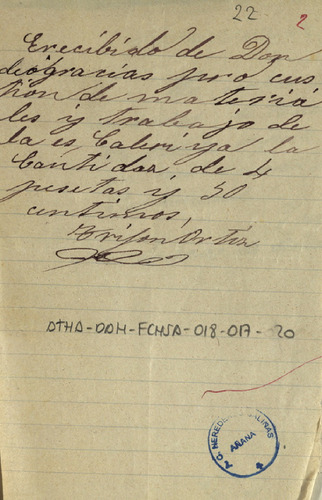 22 2
Erecibido de Don
diogracias pro cus
tion de materia
les y trabajo de
la es Caler ya la
Cantidaz, de 4
pesetas y 50
centimos,
Trifon Ortiz
ATHA-DAH-FCHSA-018-017-20
HEREDE
ALINAS
AÑANA